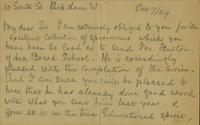 10 South St Park Lane W. Oct 7/89
My dear Sir I am extremely obliged to you for the
excellent collection of specimens which you
have been so good as to send Mr Burton,
of our Board School. He is exceedingly
pleased with the completion of the series.
And I am sure you will be pleased to
hear that he has already done good work
with what you sent him last year. &
gone at it in the true Educational spirit.